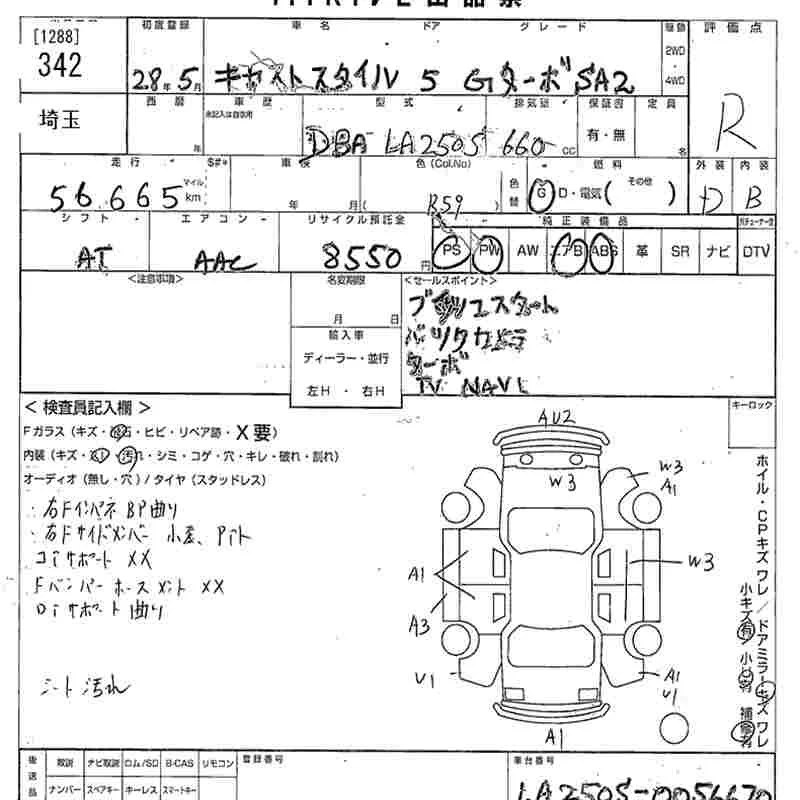 [1288]
342
初度登録
車名
ドア
グレード
駆動
評価点
28年5月
キャストスタイル 5 GターボSA2
2WD
4WD
R
埼玉
西暦
年
車歴
未記入は自家用
型式
DBA LA250S
排気量
660 cc
保証書
有・無
定員
名
走行
56,665
マイル
km
$#*
車検
年
月
色(Col.No)
( R59 )
色替
燃料
G D・電気( その他 )
外装
D
内装
B
シフト
AT
エアコン
AAC
リサイクル預託金
8550円
純正装備品
PS PW AW エアB ABS 革 SR ナビ DTV
<注意事項>
名変期限
月 日
輸入車
ディーラー・並行
左H ・ 右H
<セールスポイント>
プッシュスタート
バックカメラ
ターボ
TV NAVI
<検査員記入欄>
Fガラス(キズ・飛石・ヒビ・リペア跡・X要)
内装(キズ・汚れ・シミ・コゲ・穴・キレ・破れ・割れ)
オーディオ(無し・穴)/タイヤ(スタッドレス)
・右Fインパネ BP曲り
・右Fサイドメンバー 小差、Pイト
コアサポート XX
Fバンパーホースメント XX
ロアサポート曲り
シート汚れ
キーロック
AU2
W3
W3
A1
A1
W3
A3
U1
A1
U1
A1
ホイル・CPキズワレ/ドアミラーキズワレ
小キズ有
後送品
取説 ナビ取説 ロム/SD B-CAS リモコン
ナンバー スペアキー キーレス スマートキー
登録番号
車台番号
LA250S-0056670